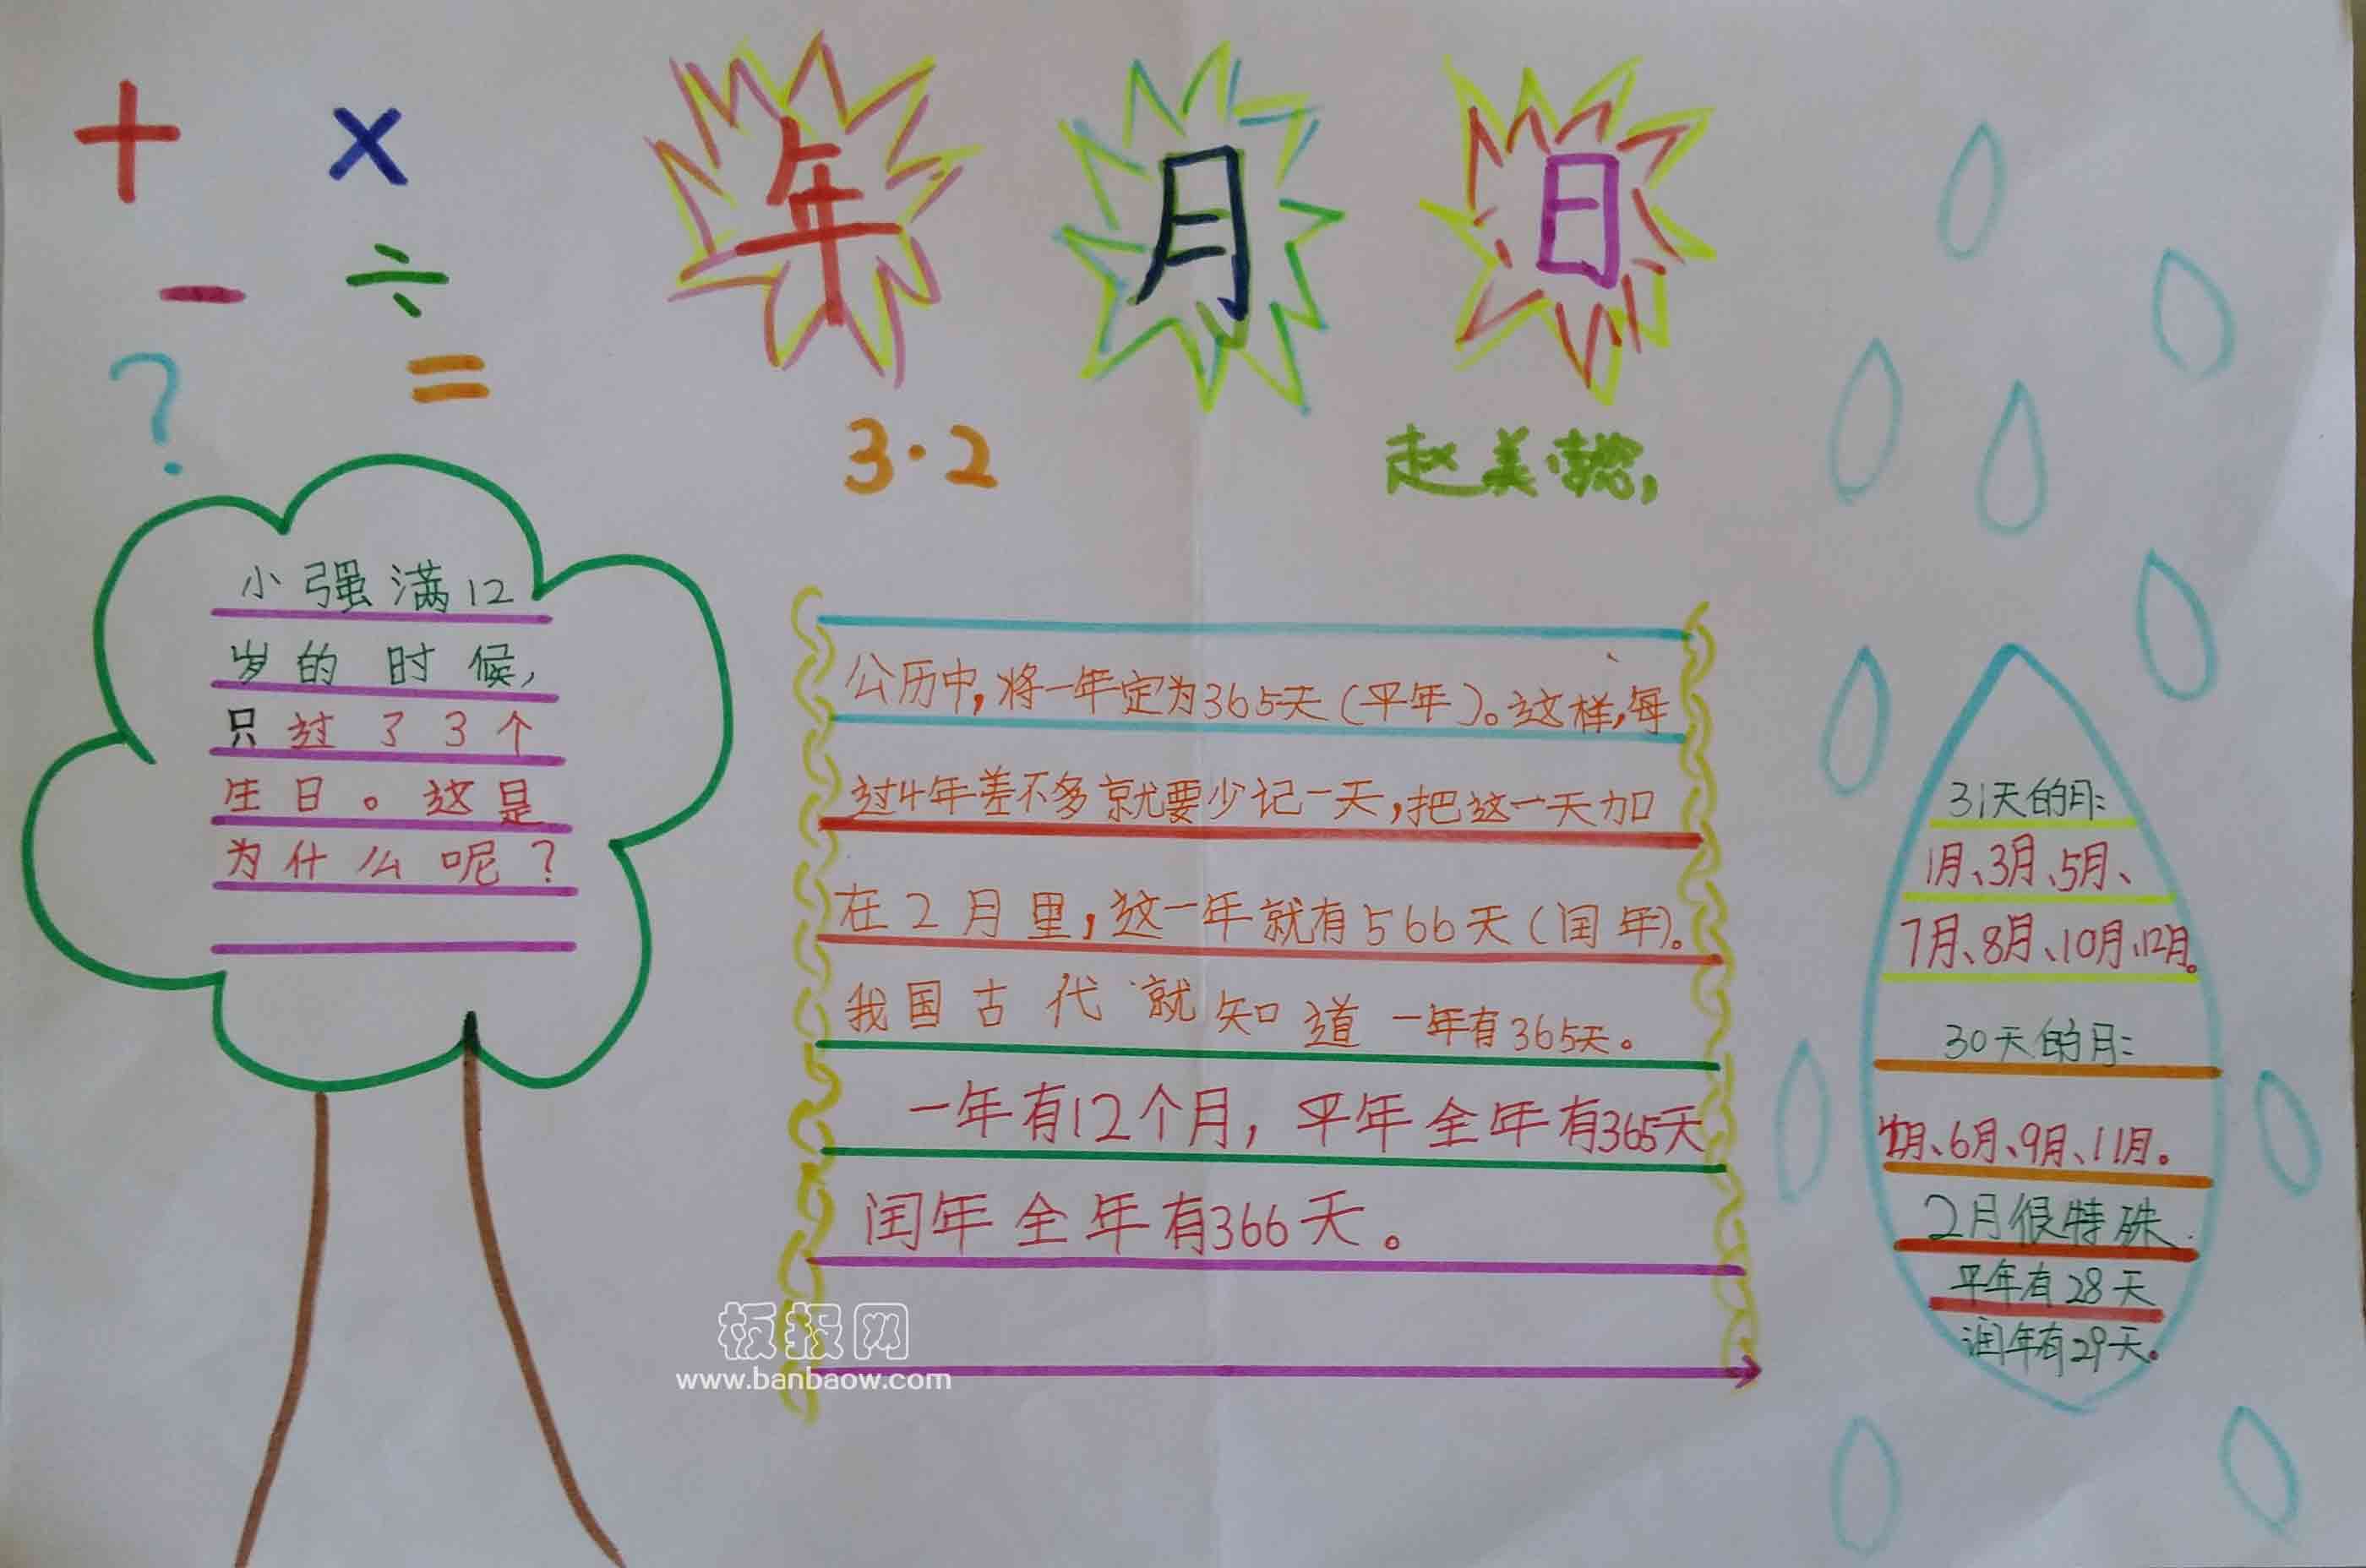 + ×
- ÷
? =
年 月 日
3·2 赵美懿,
小强满12
岁的时候,
只过了3个
生日。这是
为什么呢?
公历中,将一年定为365天(平年)。这样,每
过4年差不多就要少记一天,把这一天加
在2月里,这一年就有566天(闰年)。
我国古代就知道一年有365天。
一年有12个月,平年全年有365天
闰年全年有366天。
31天的月:
1月、3月、5月、
7月、8月、10月、12月。
30天的月:
4月、6月、9月、11月。
2月很特殊.
平年有28天
润年有29天。
板报网
www.banbaow.com